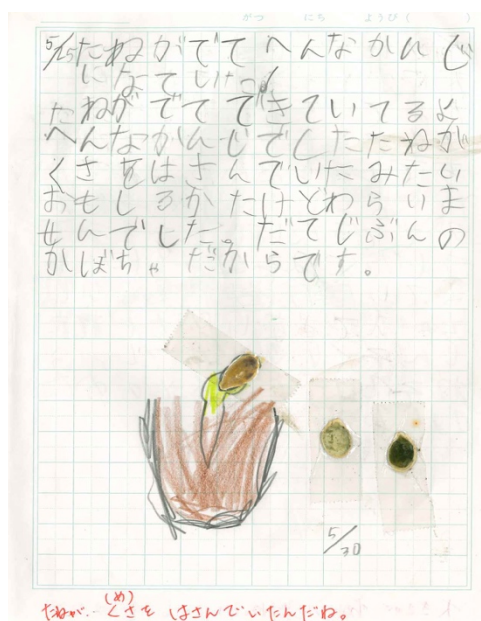 5/25たねがでてへんなかんじ
になていけっ
たねがでてできていてるよ
へんなかんじでしたたねが
くさをはさんでいたみたい
おもしろかたけどわらいま
せんでした。だてじぶんの
かぼちゃだからです。
5/30
(め)
たねが…くさをはさんでいたんだね。